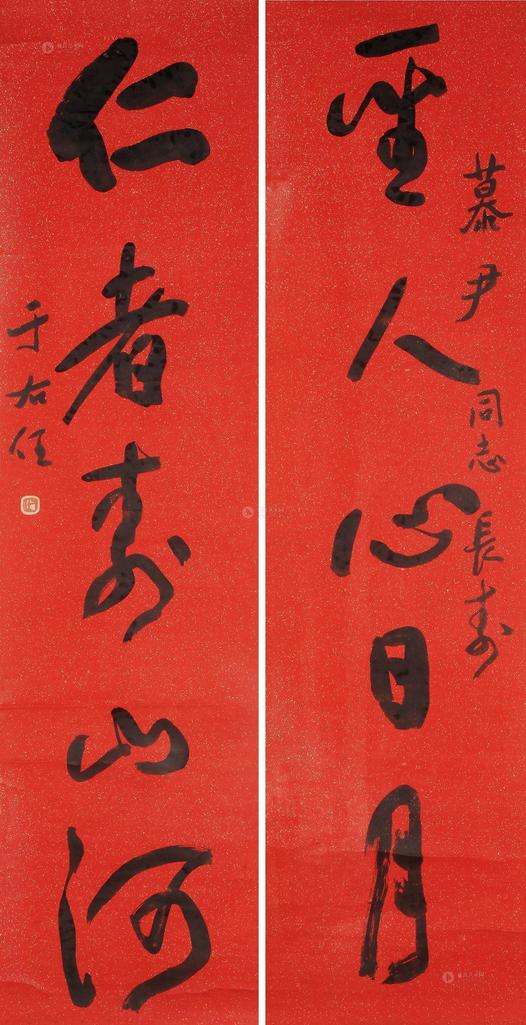 慕尹同志長壽
聖人心日月
仁者壽山河
于右任